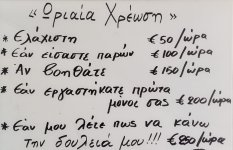 " Ωριαία Χρέωση "
* Ελάχιστη €50/ώρα
* Εάν είσαστε παρών €100/ώρα
* Αν βοηθάτε €150/ώρα
* Εάν εργαστήκατε πρώτα
μόνος σας €200/ώρα
* Εάν μου λέτε πως να κάνω
την δουλειά μου!!! €250/ώρα